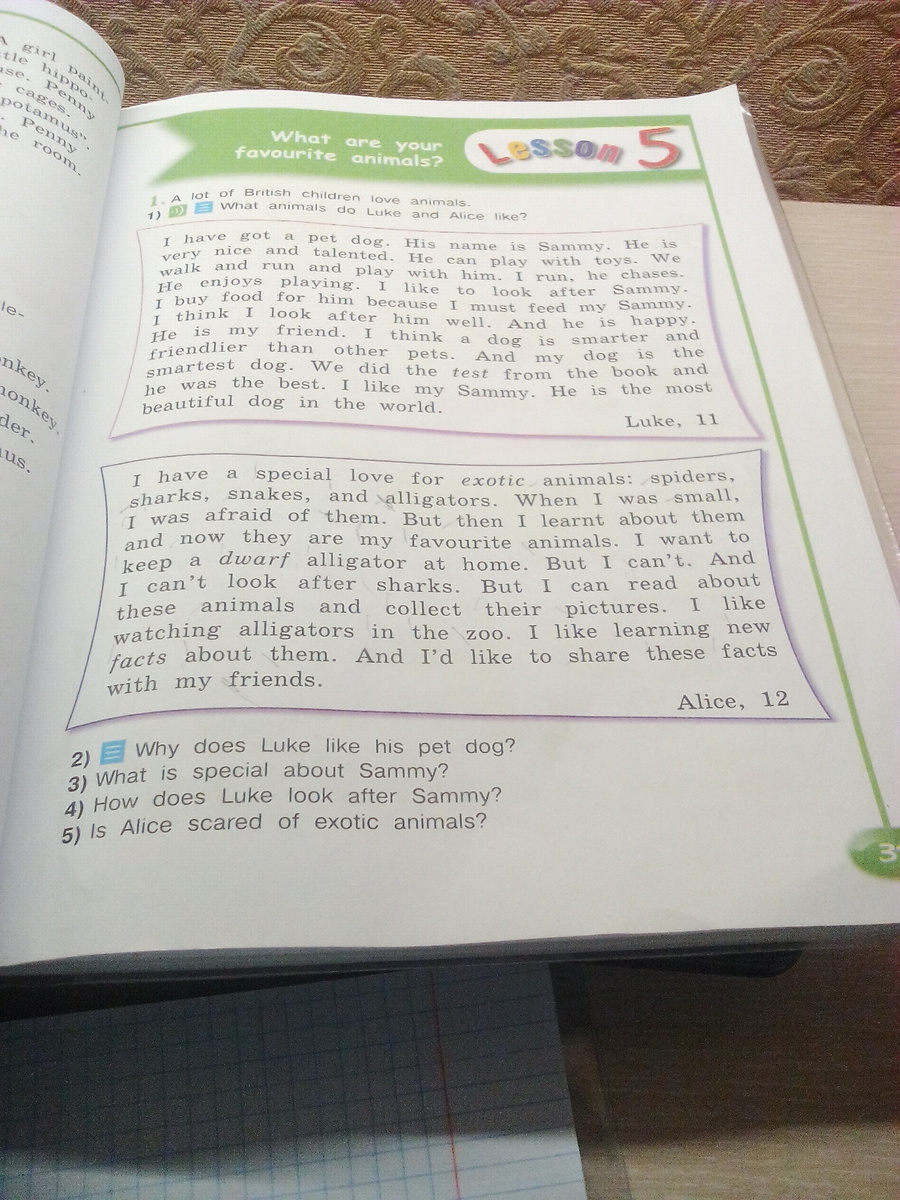 A girl paint-
ttle hippo-
use. Penny
cages.
potamus".
. Penny
he room.
le-
nkey.
monkey.
der.
us.
What are your
favourite animals?
Lesson 5
1. A lot of British children love animals.
1) What animals do Luke and Alice like?
I have got a pet dog. His name is Sammy. He is
very nice and talented. He can play with toys. We
walk and run and play with him. I run, he chases.
He enjoys playing. I like to look after Sammy.
I buy food for him because I must feed my Sammy.
I think I look after him well. And he is happy.
He is my friend. I think a dog is smarter and
friendlier than other pets. And my dog is the
smartest dog. We did the test from the book and
he was the best. I like my Sammy. He is the most
beautiful dog in the world.
Luke, 11
I have a special love for exotic animals: spiders,
sharks, snakes, and alligators. When I was small,
I was afraid of them. But then I learnt about them
and now they are my favourite animals. I want to
keep a dwarf alligator at home. But I can't. And
I can't look after sharks. But I can read about
these animals and collect their pictures. I like
watching alligators in the zoo. I like learning new
facts about them. And I'd like to share these facts
with my friends.
Alice, 12
2) Why does Luke like his pet dog?
3) What is special about Sammy?
4) How does Luke look after Sammy?
5) Is Alice scared of exotic animals?